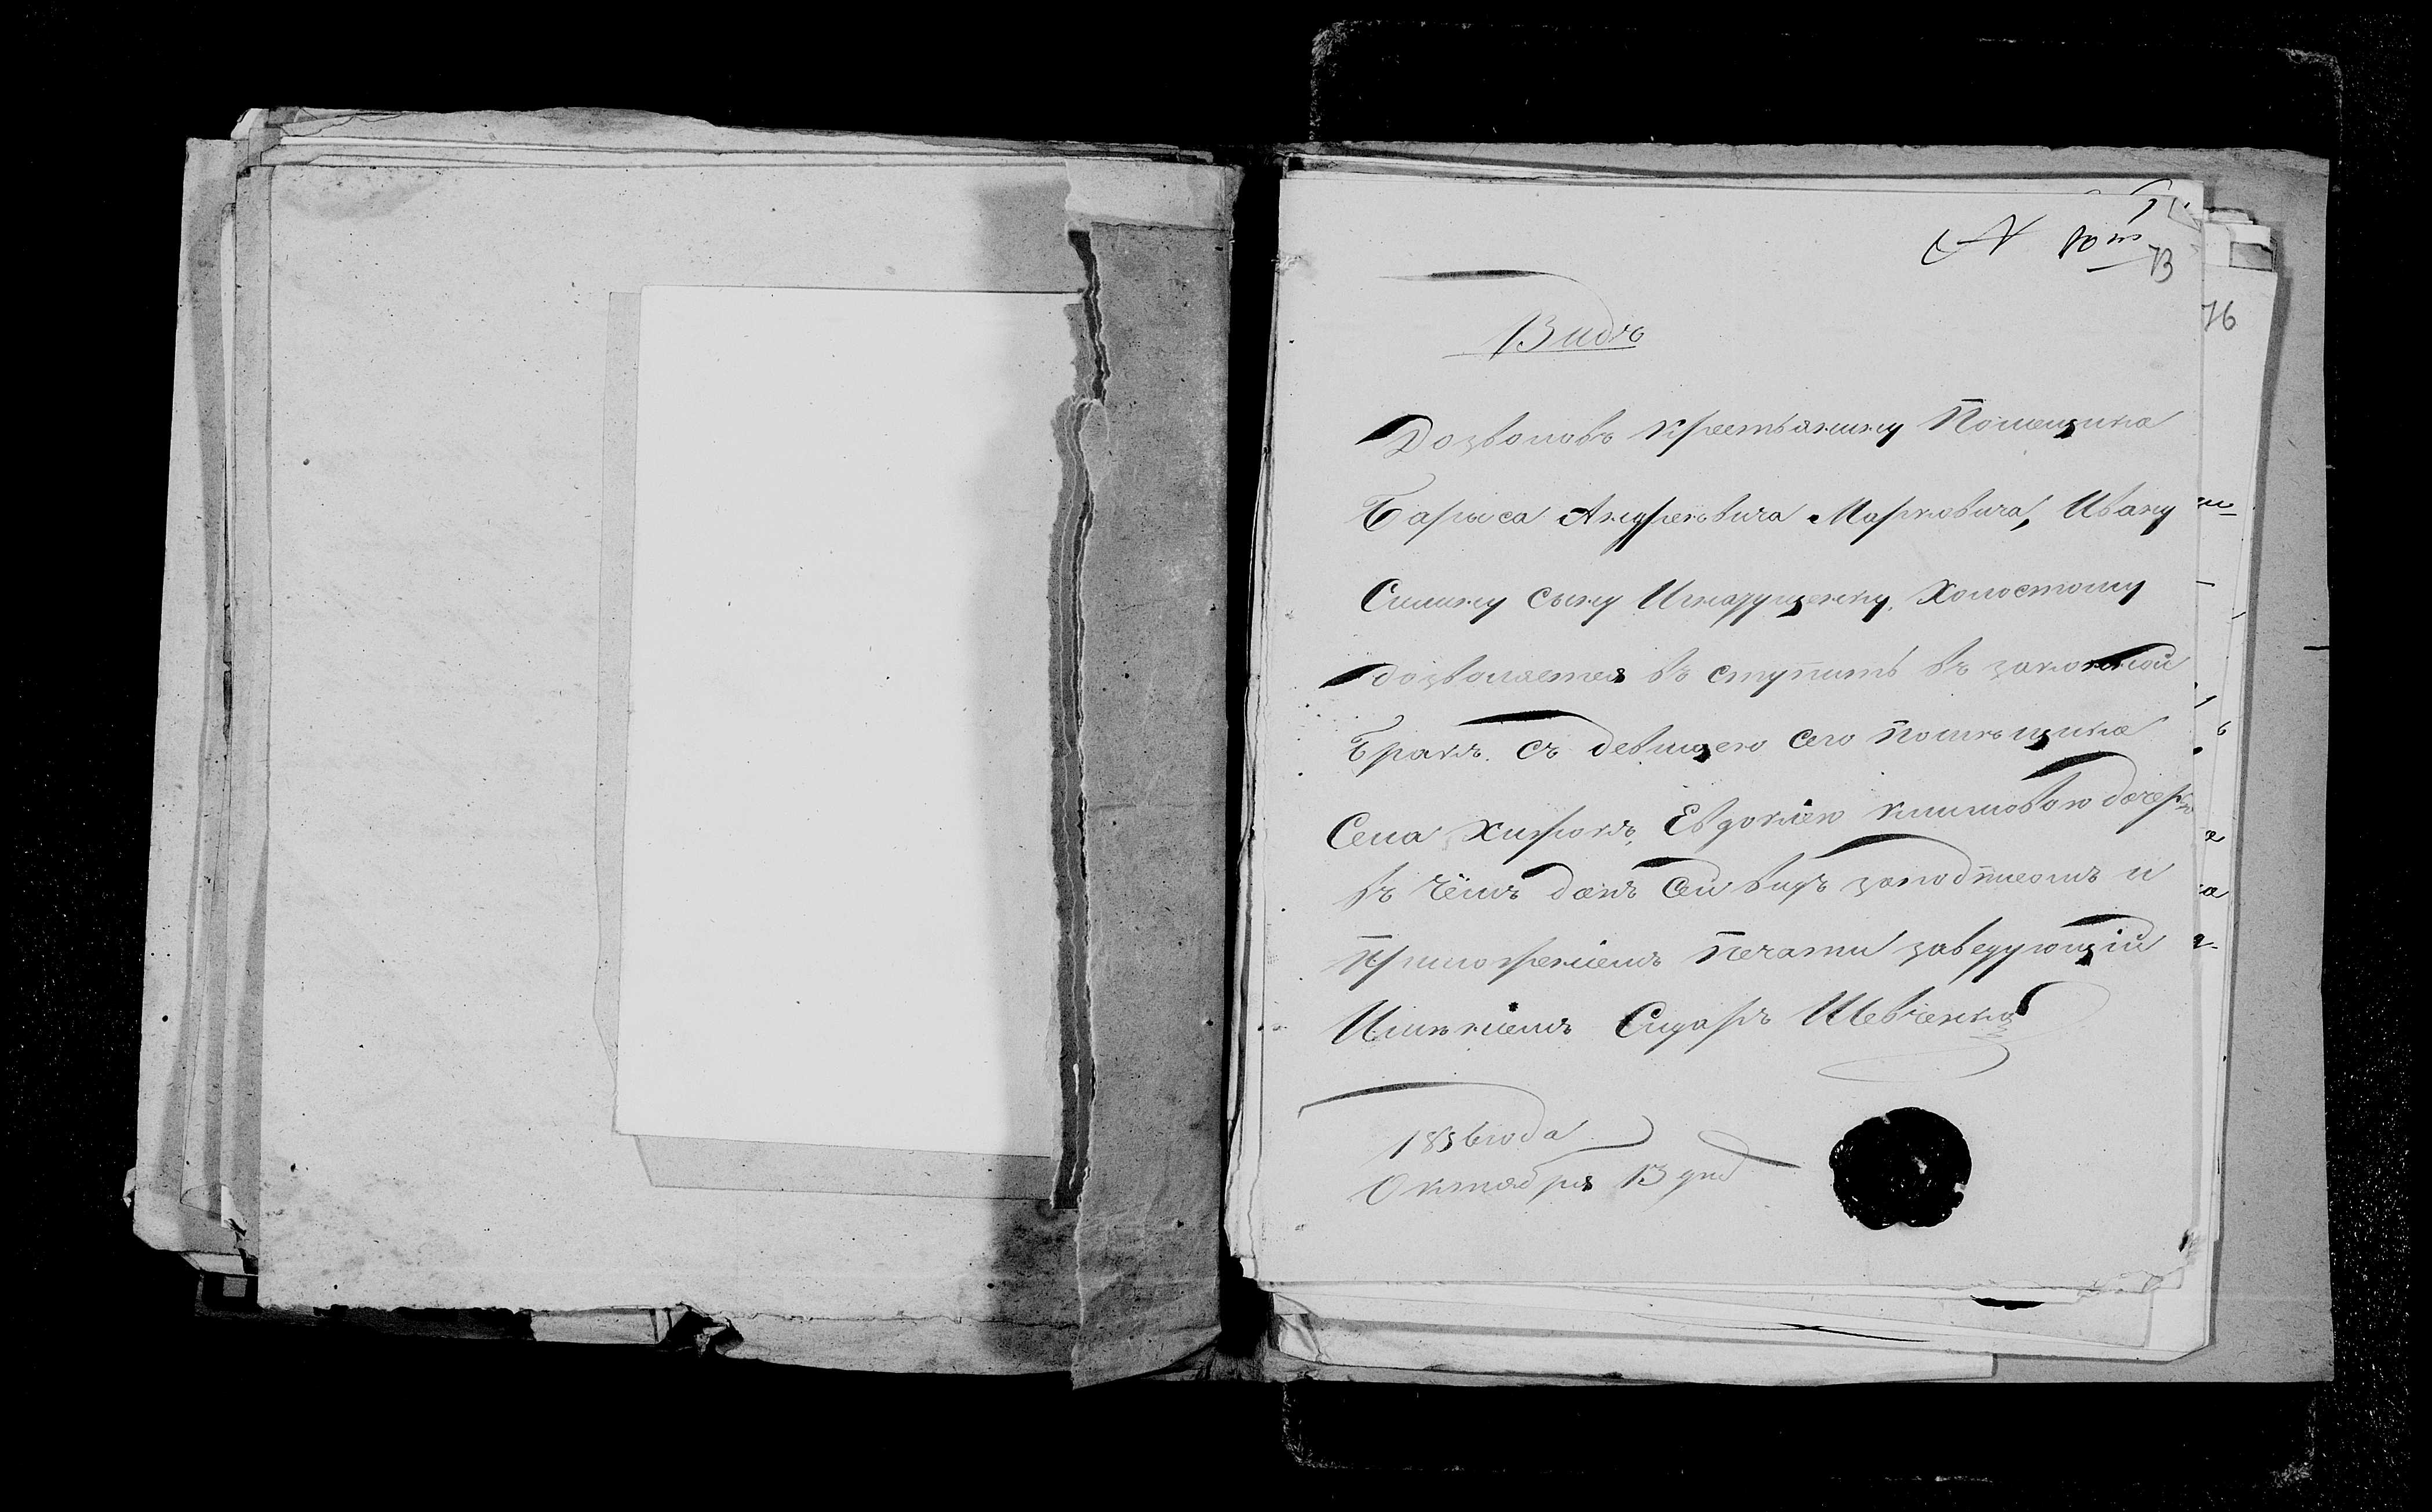 № 10
73
76
Видъ
Дозволовъ крестьянину Помещика
Бариса Андреевича Марковича, Ивану
Сыну Холостому
дозволяетея въ ступить въ законной
Бракъ. съ девицею сего помѣщика
Села Хижокъ, Евдокіею Климовою дочерю
въ чёмъ данъ сей видъ заподписомъ и
Приложеніемъ Печати заведующій
Имѣніемъ Сидаръ Шевченко
1856 года
Октября 13 дня